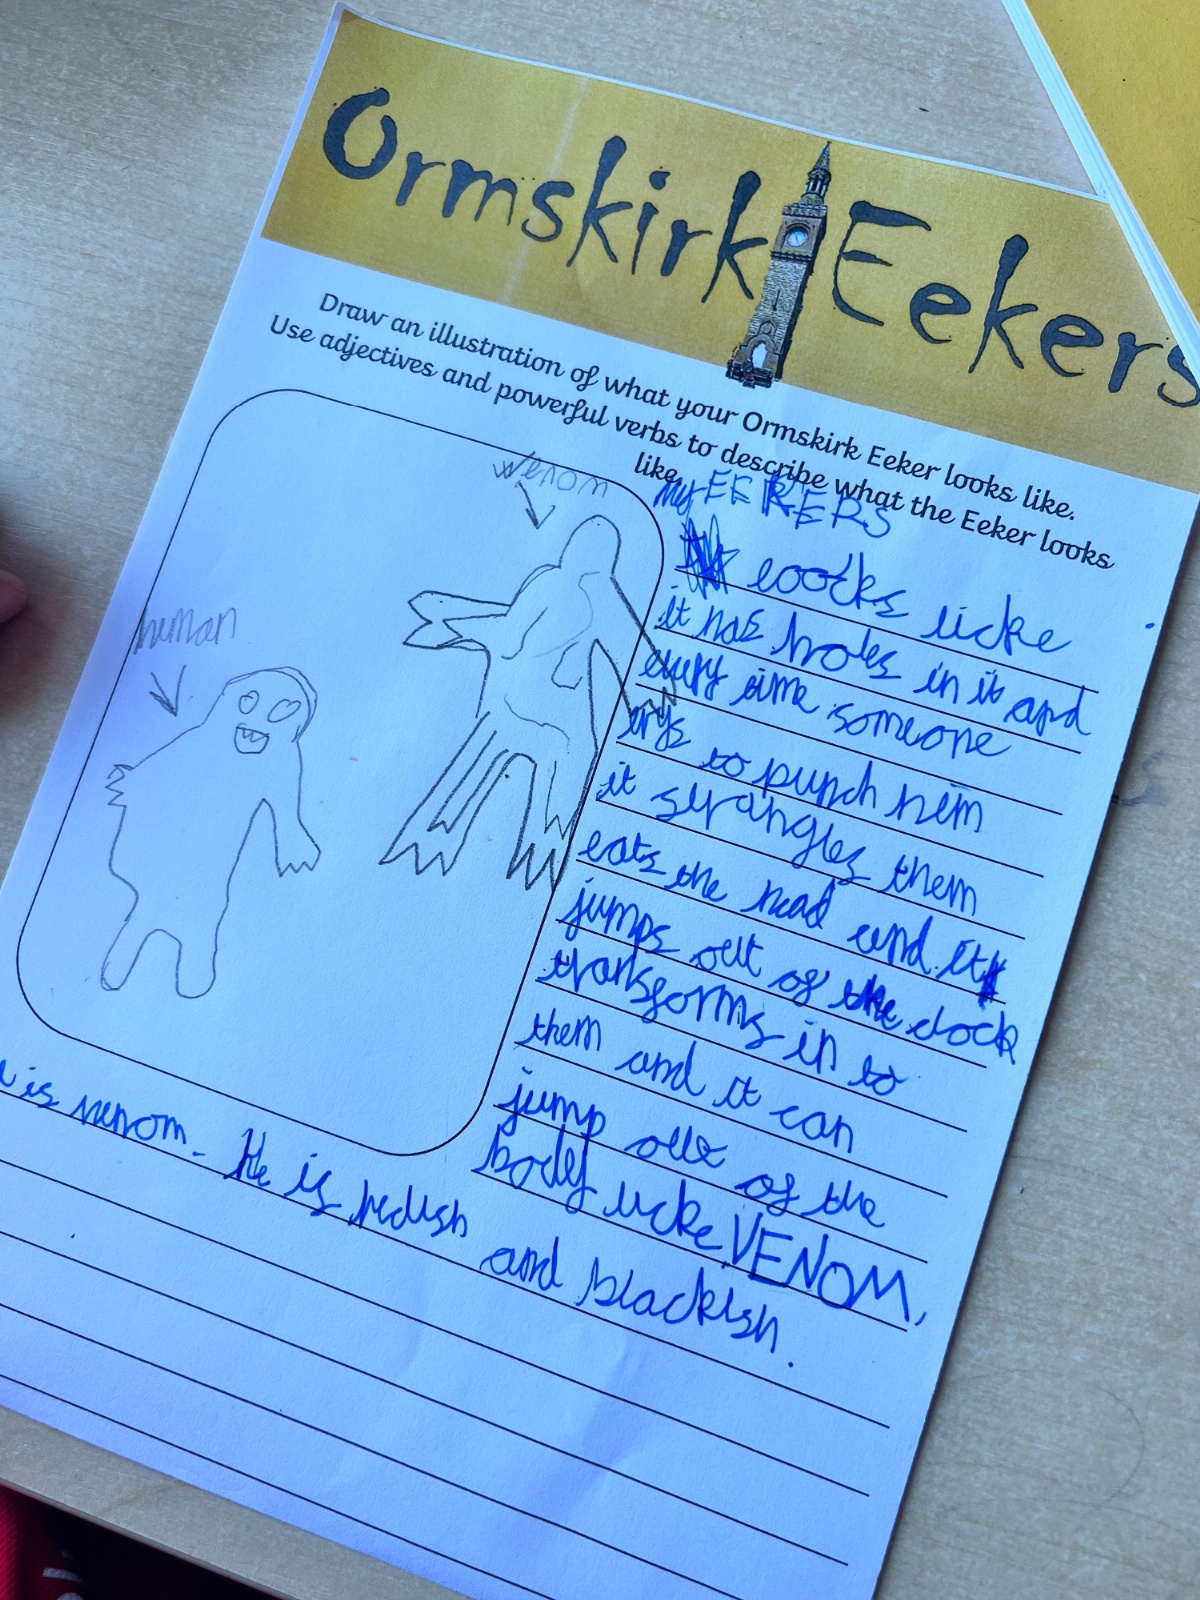 Ormskirk Eekers
Draw an illustration of what your Ormskirk Eeker looks like.
Use adjectives and powerful verbs to describe what the Eeker looks
like.
my EEKERS
loocks licke
it has holes in it and
every time someone
trys to punch him
it strangles them
eats the head and it
jumps out of the clock
transforms in to
them and it can
jump out of the
body licke VENOM,
is venom. He is redish
and blackish.
venom
human